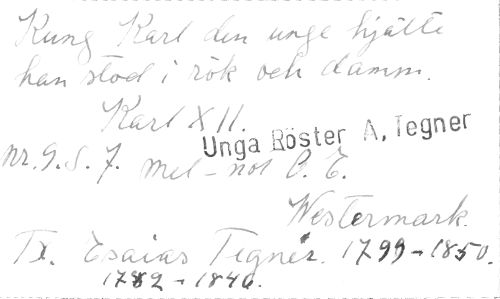 Kung Karl den unge hjälte
han stod i rök och damm.
Karl XII.
Unga Röster A. Tegner
nr. 9. S. 7. mel-not O. E.
Westermark.
Tx. Esaias Tegnér. 1799-1850.
1782-1846.